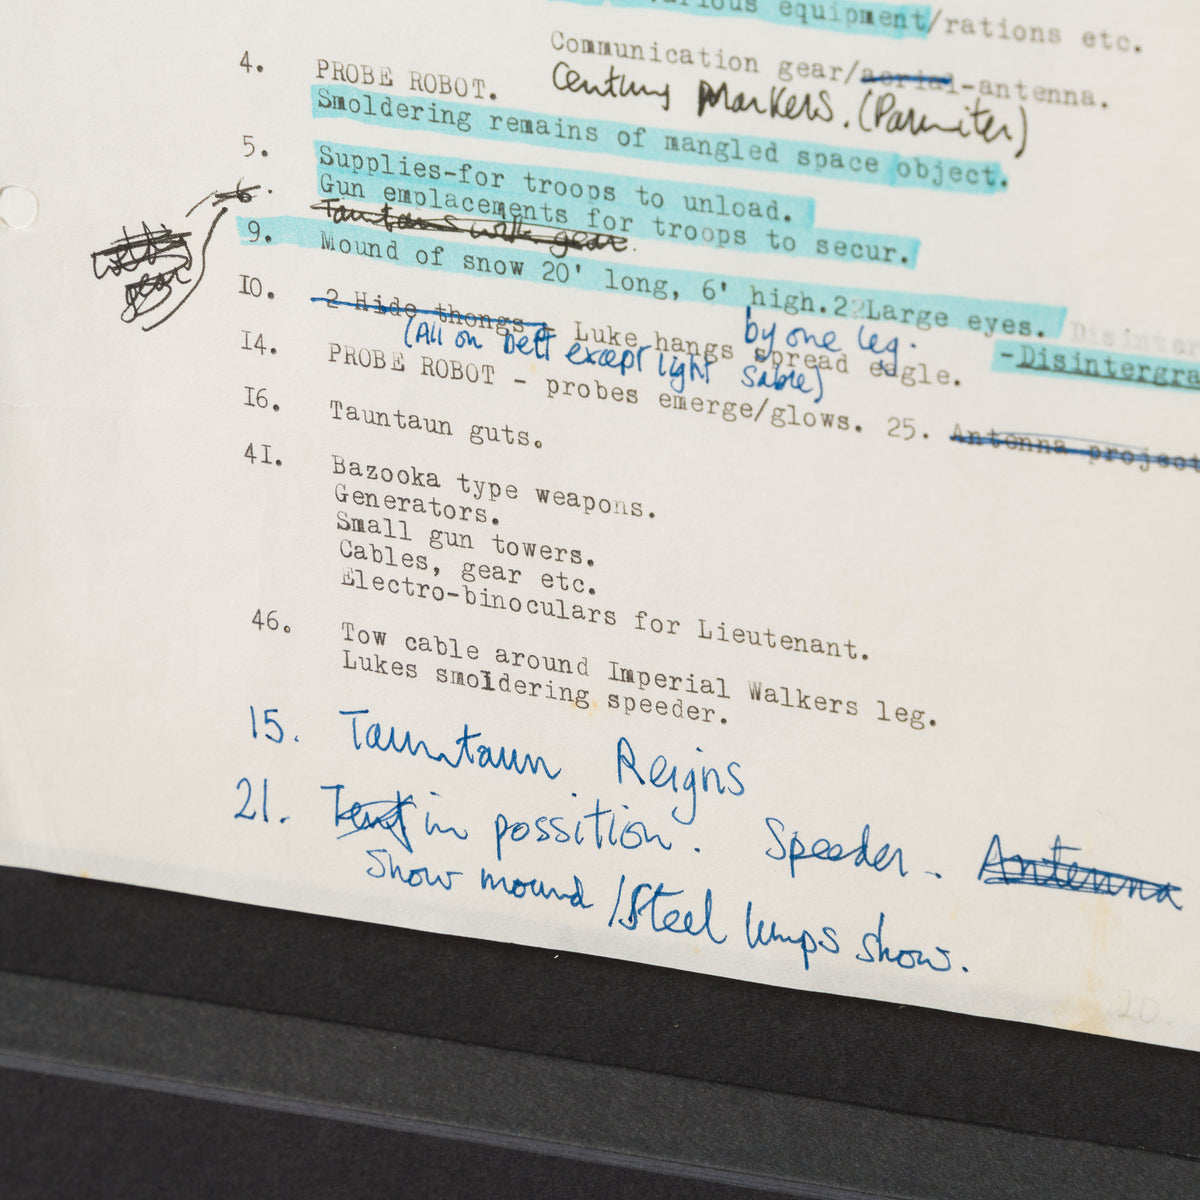 various equipment/rations etc.
Communication gear/aerial-antenna.
4. PROBE ROBOT. Markers. (Parmiter)
Smoldering remains of mangled space object.
5. Supplies-for troops to unload.
Gun emplacements for troops to secur.
6. Tauntauns with gear.
with gear
9. Mound of snow 20' long, 6' high.2?Large eyes.
Disinter
10. 2 Hide thongs Luke hangs spread eagle.
by one leg.
-Disintergra
(All on belt except light Sable)
14. PROBE ROBOT - probes emerge/glows. 25. Antenna project
16. Tauntaun guts.
41. Bazooka type weapons.
Generators.
Small gun towers.
Cables, gear etc.
Electro-binoculars for Lieutenant.
46. Tow cable around Imperial Walkers leg.
Lukes smoldering speeder.
15. Tauntaun Reigns
21. Tent in possition. Speeder. Antenna
Show mound / Steel lumps show.
20.